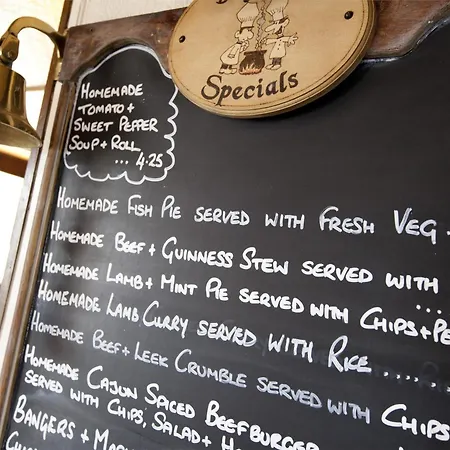 Specials
HOMEMADE
TOMATO +
SWEET PEPPER
SOUP + ROLL
... 4.25
HOMEMADE FISH PIE SERVED WITH FRESH VEG.
HOMEMADE BEEF + GUINNESS STEW SERVED WITH
...
HOMEMADE LAMB + MINT PIE SERVED WITH CHIPS + PE
HOMEMADE LAMB CURRY SERVED WITH RICE .....
HOMEMADE BEEF + LEEK CRUMBLE SERVED WITH CHIPS
HOMEMADE CAJUN SPICED BEEFBURGER
SERVED WITH CHIPS, SALAD +
BANGERS +